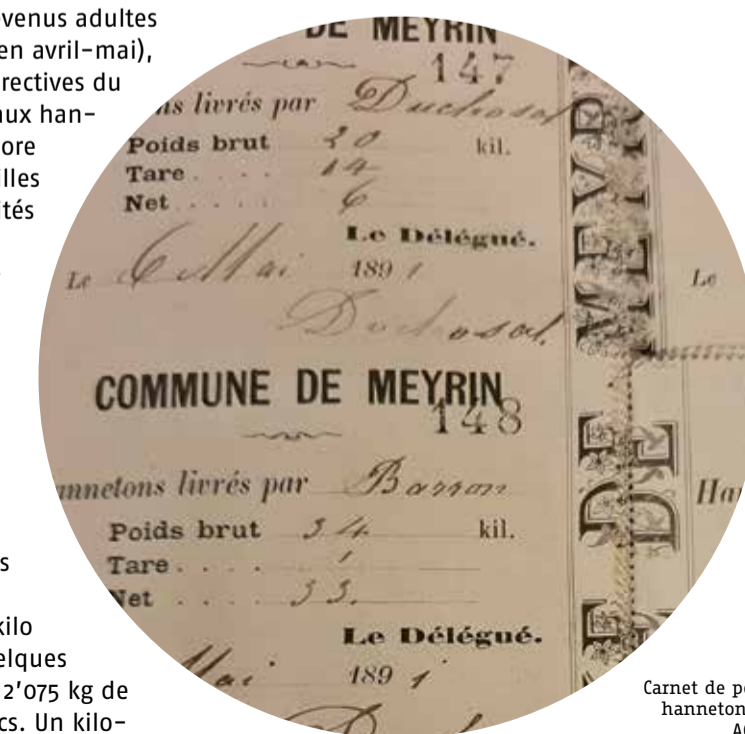 evenus adultes
en avril-mai),
rectives du
aux han-
ore
illes
ités
s
kilo
elques
2'075 kg de
cs. Un kilo-
DE MEYRIN
147
ns livrés par Duchosal
Poids brut 20 kil.
Tare . . . . 14
Net . . . . . 6
Le Délégué.
Le 6 Mai 1891
Duchosal.
COMMUNE DE MEYRIN
148
nnetons livrés par Barron
Poids brut 34 kil.
Tare . . . . 1
Net . . . . . 33.
Le Délégué.
Mai 1891
MEYR
DE
Le
Han
Carnet de pe
hanneton